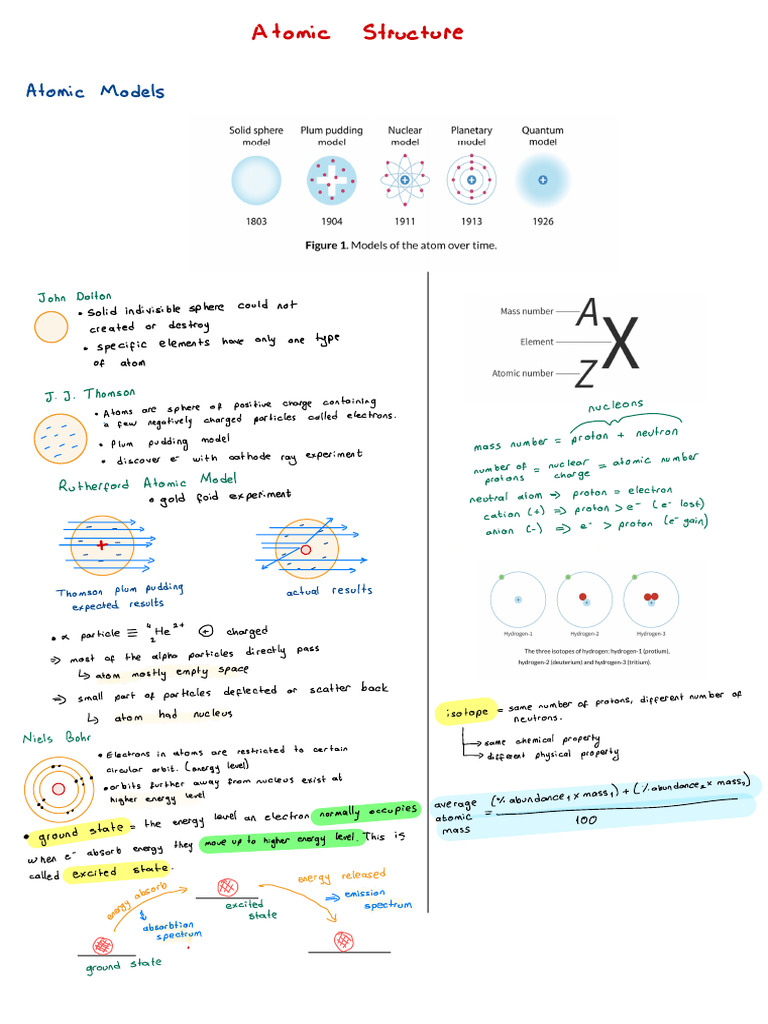 Atomic Structure
Atomic Models
Solid sphere model
Plum pudding model
Nuclear model
Planetary model
Quantum model
1803
1904
1911
1913
1926
Figure 1. Models of the atom over time.
John Dalton
• Solid indivisible sphere could not
created or destroy
• specific elements have only one type
of atom
J. J. Thomson
• Atoms are sphere of positive charge containing
a few negatively charged particles called electrons.
• Plum pudding model
• discover e⁻ with cathode ray experiment
Rutherford Atomic Model
• gold foid experiment
Thomson plum pudding
expected results
actual results
• α particle ≡ ⁴₂He²⁺ ⊕ charged
⇒ most of the alpha particles directly pass
↳ atom mostly empty space
⇒ small part of particles deflected or scatter back
↳ atom had nucleus
Niels Bohr
• Electrons in atoms are restricted to certain
circular orbit. (energy level)
• orbits further away from nucleus exist at
higher energy level
• ground state = the energy level an electron normally occupies
when e⁻ absorb energy they move up to higher energy level. This is
called excited state.
energy absorb
absorbtion
spectrum
ground state
excited
state
energy released
⇒ emission
spectrum
Mass number
A
Element
X
Atomic number
Z
nucleons
mass number = proton + neutron
number of protons = nuclear charge = atomic number
neutral atom ⇒ proton = electron
cation (+) ⇒ proton > e⁻ (e⁻ lost)
anion (-) ⇒ e⁻ > proton (e⁻ gain)
Hydrogen-1
Hydrogen-2
Hydrogen-3
The three isotopes of hydrogen: hydrogen-1 (protium),
hydrogen-2 (deuterium) and hydrogen-3 (tritium).
isotope = same number of protons, different number of
neutrons.
→ same chemical property
→ different physical property
average atomic mass = (% abundance₁ x mass₁) + (% abundance₂ x mass₂)
100